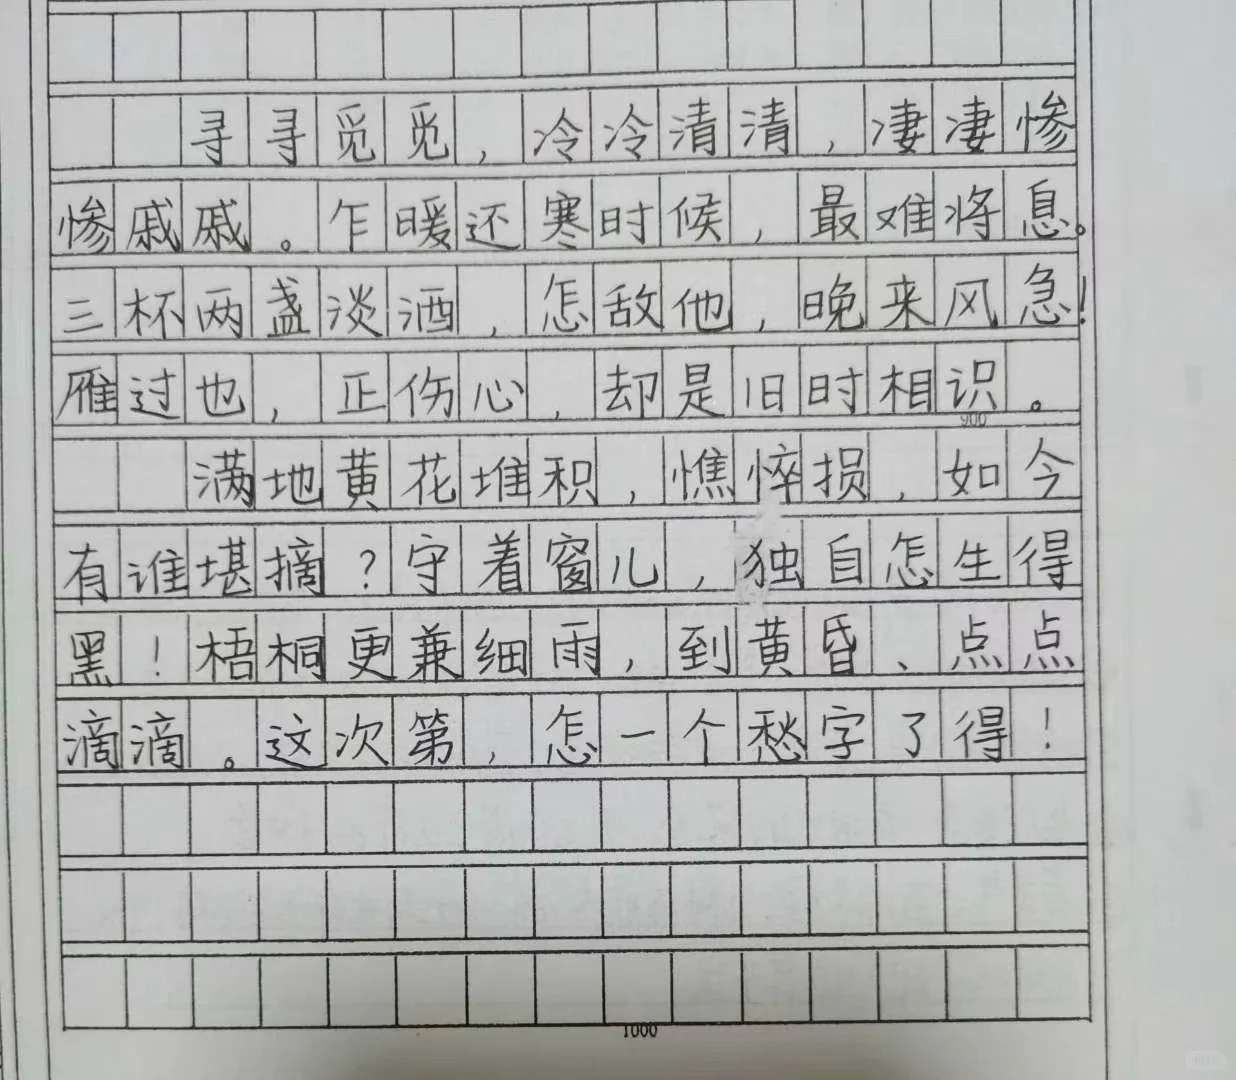 寻寻觅觅，冷冷清清，凄凄惨
惨戚戚。乍暖还寒时候，最难将息。
三杯两盏淡酒，怎敌他，晚来风急！
雁过也，正伤心，却是旧时相识。
900
满地黄花堆积，憔悴损，如今
有谁堪摘？守着窗儿，独自怎生得
黑！梧桐更兼细雨，到黄昏、点点
滴滴。这次第，怎一个愁字了得！
1000